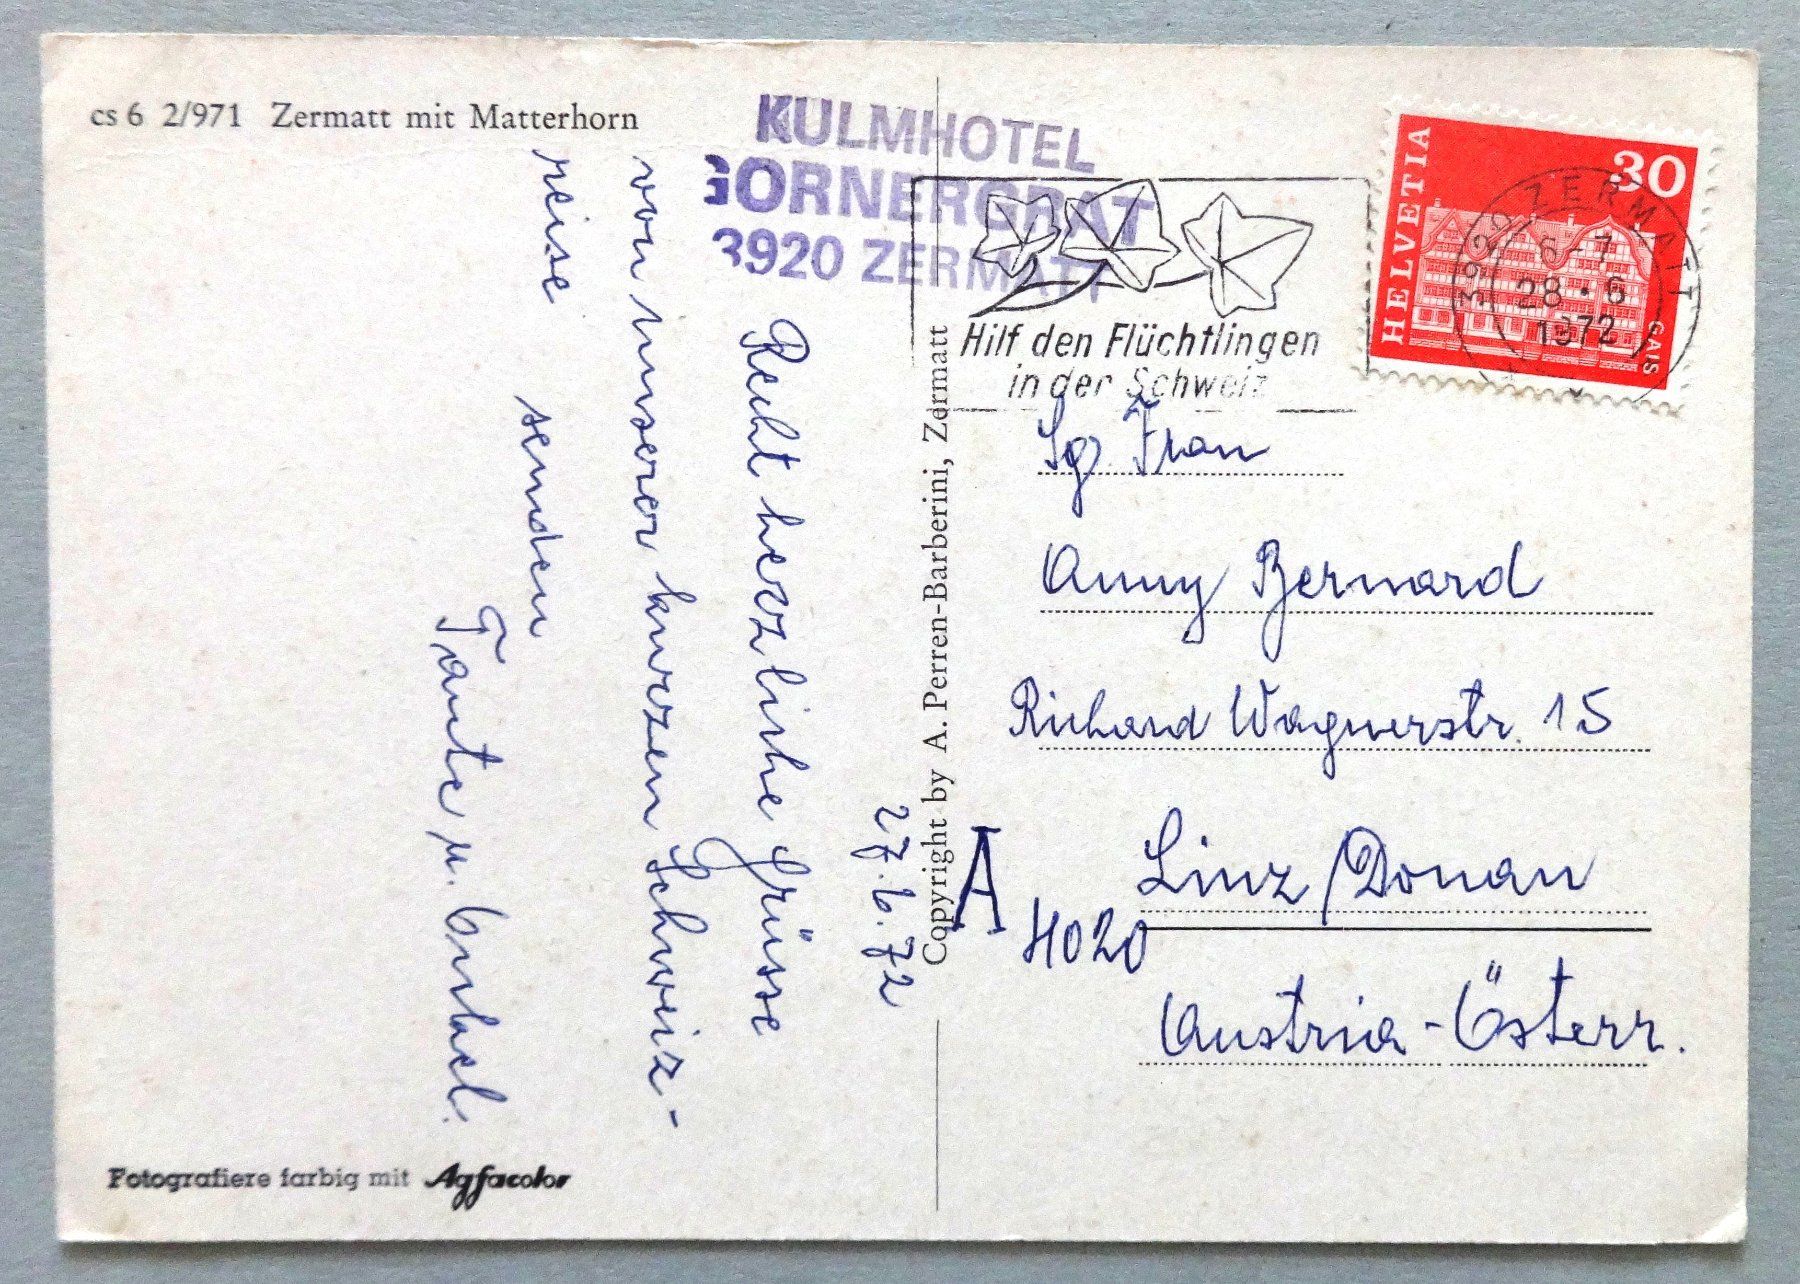 cs 6 2/971 Zermatt mit Matterhorn
KULMHOTEL
GORNERGRAT
3920 ZERMATT
27.6.72
Recht herzliche Grüsse
von unserer kurzen Schweiz-
reise senden
Tante u. Onkel.
Fotografiere farbig mit Agfacolor
Copyright by A. Perren-Barberini, Zermatt
Hilf den Flüchtlingen
in der Schweiz
HELVETIA
30
GAIS
3920 ZERMATT
28.6
1972
Sg. Frau
Anny Bernard
Richard Wagnerstr. 15
A
4020 Linz/Donau
Austria-Österr.